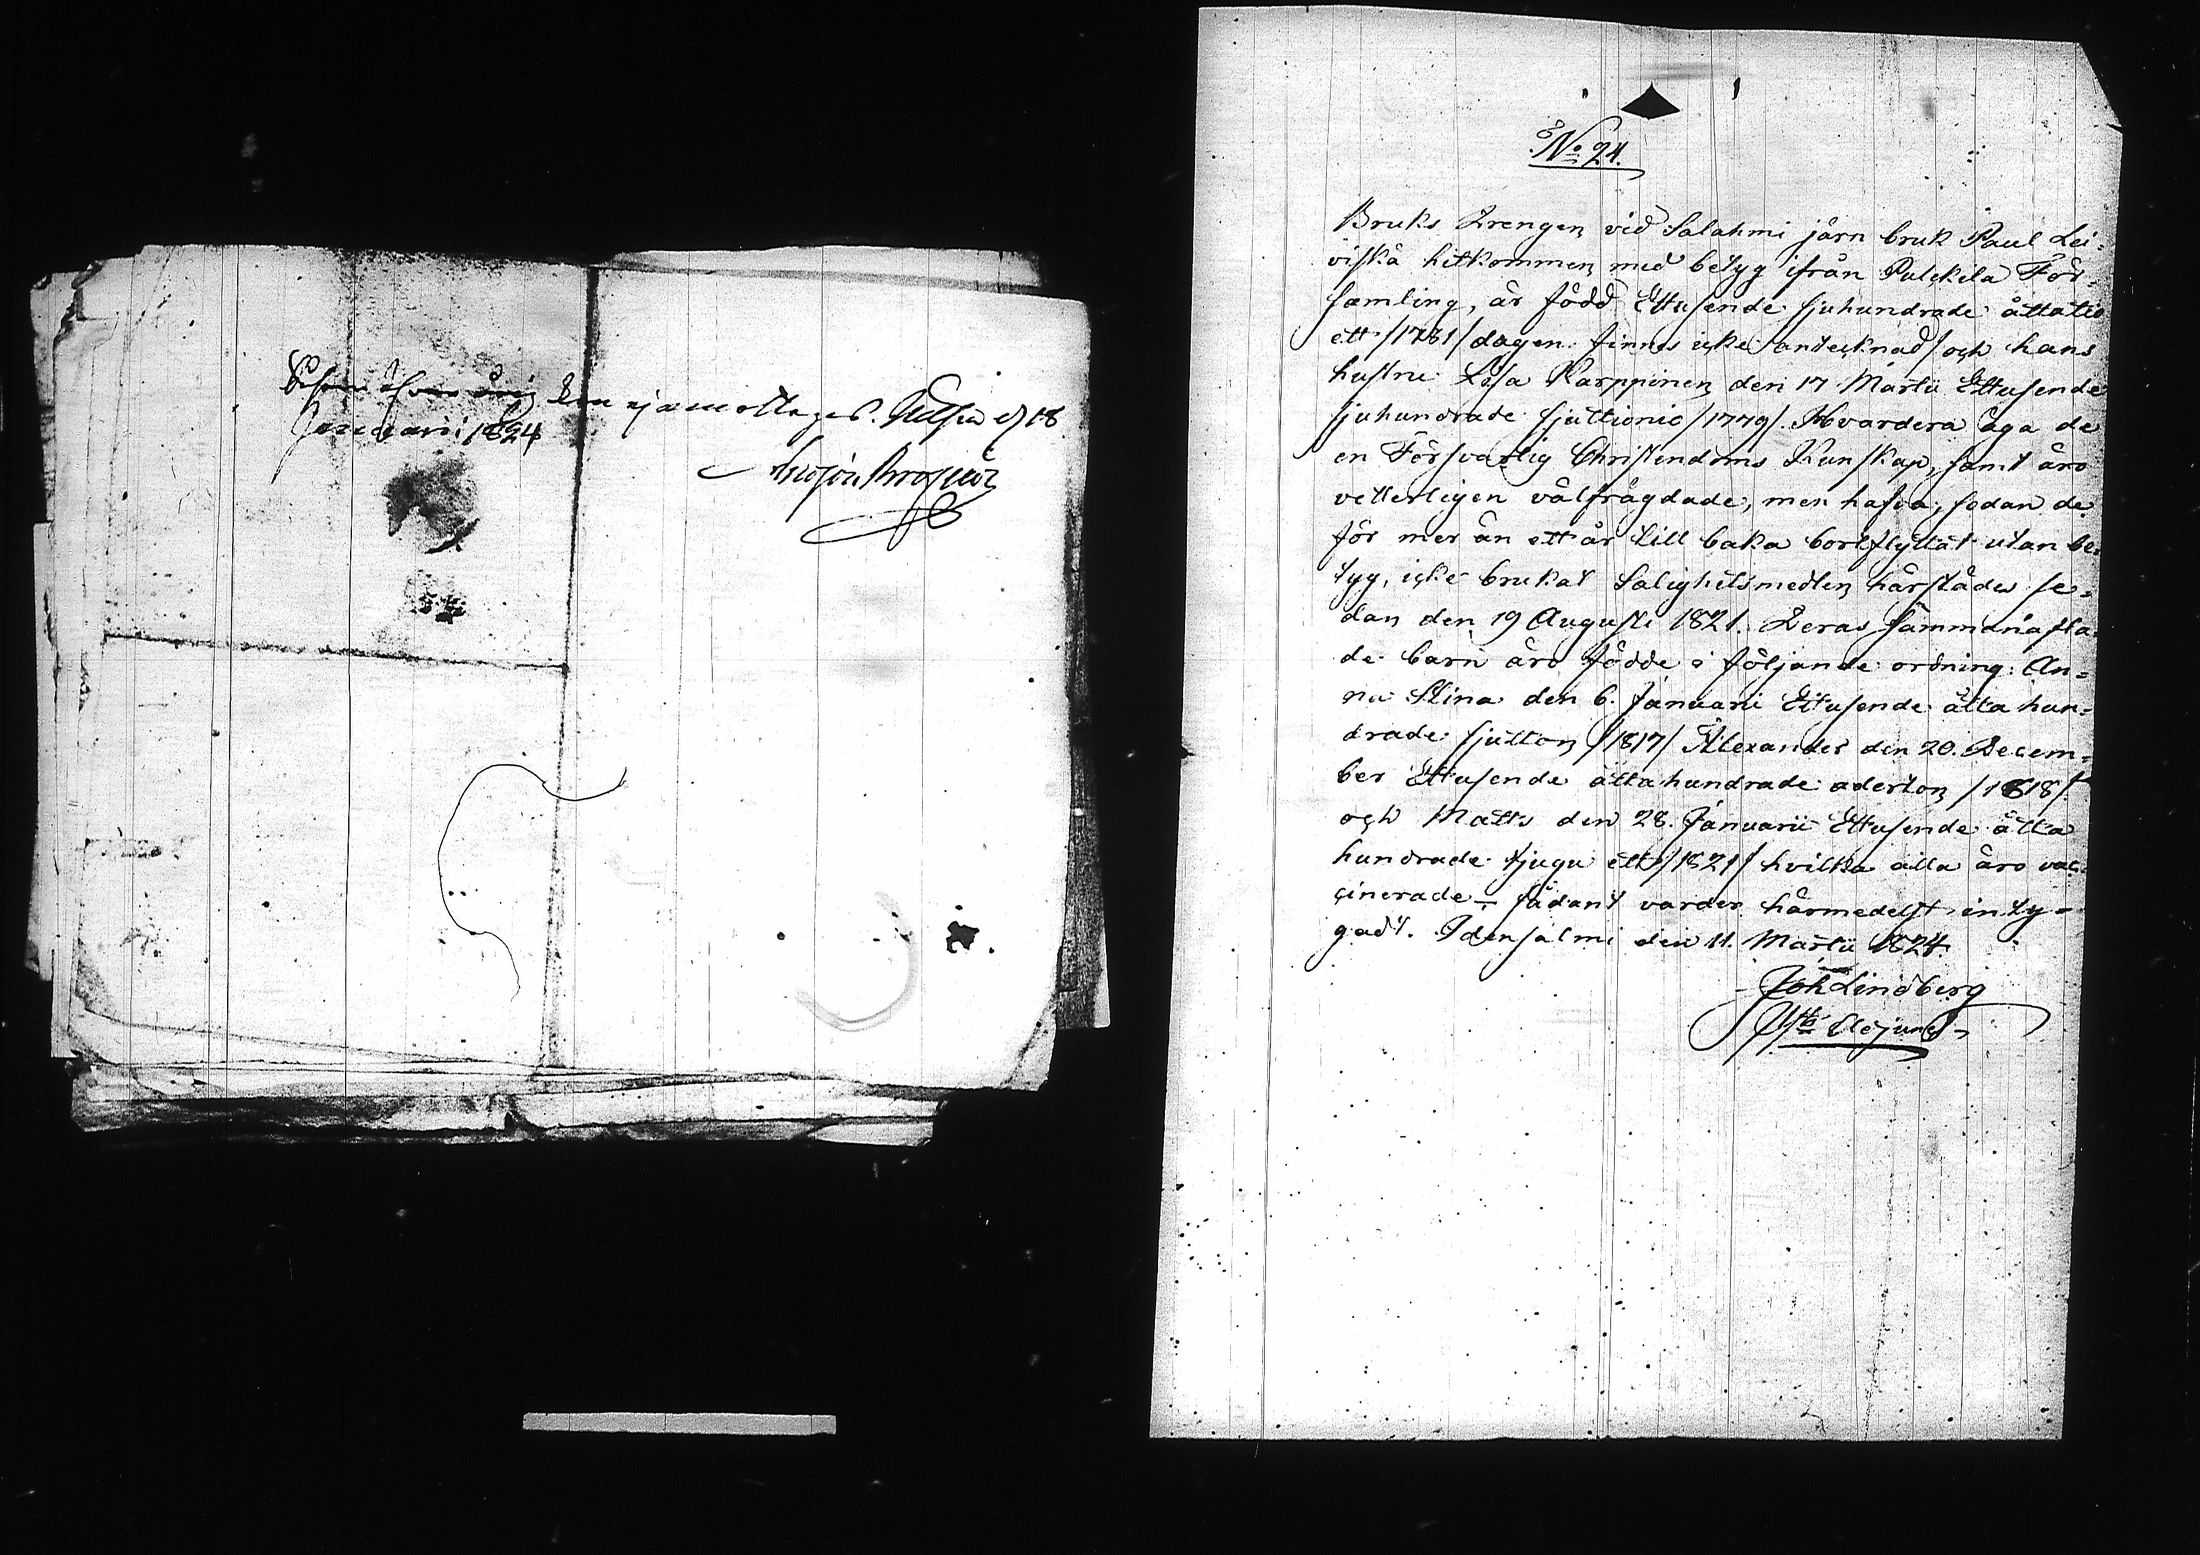 kan ej emottages. Nilsiä d 18
Januarii 1824
No 24.
Bruks Drengen vid Salahmi järn bruk Paul Lei-
viskä hitkommen med betyg ifrån Pulckila För-
samling, är född Ettusende sjuhundrade åttatio
ett /1781/ dagen finnes icke antecknad/ och hans
hustru Lisa Karppinen den 17 Martii Ettusende
sjuhundrade sjuttionio /1779/. Hvardera äga de
en Försvarlig Christendoms Kunskap, samt äro
vetterligen välfrägdade, men hafva, sedan de
för mer än ett år till baka bortflyttat utan be-
tyg, icke brukat Salighetsmedlen härstädes se-
dan den 19 Augusti 1821. Deras sammanafla-
de barn äro födde i följande ordning: An-
na Stina den 6. Januarii Ettusende åtta hun-
drade sjutton /1817/ Alexander den 20. Decem-
ber Ettusende åttahundrade aderton /1818/
och Matts den 28. Januarii Ettusende åtta
hundrade tjugu ett /1821/ hvilka alla äro vac-
cinerade – sådant varder härmedelst inty-
gadt. Idensalmi den 11. Martii 1824.
Joh Lindberg
Adjunct